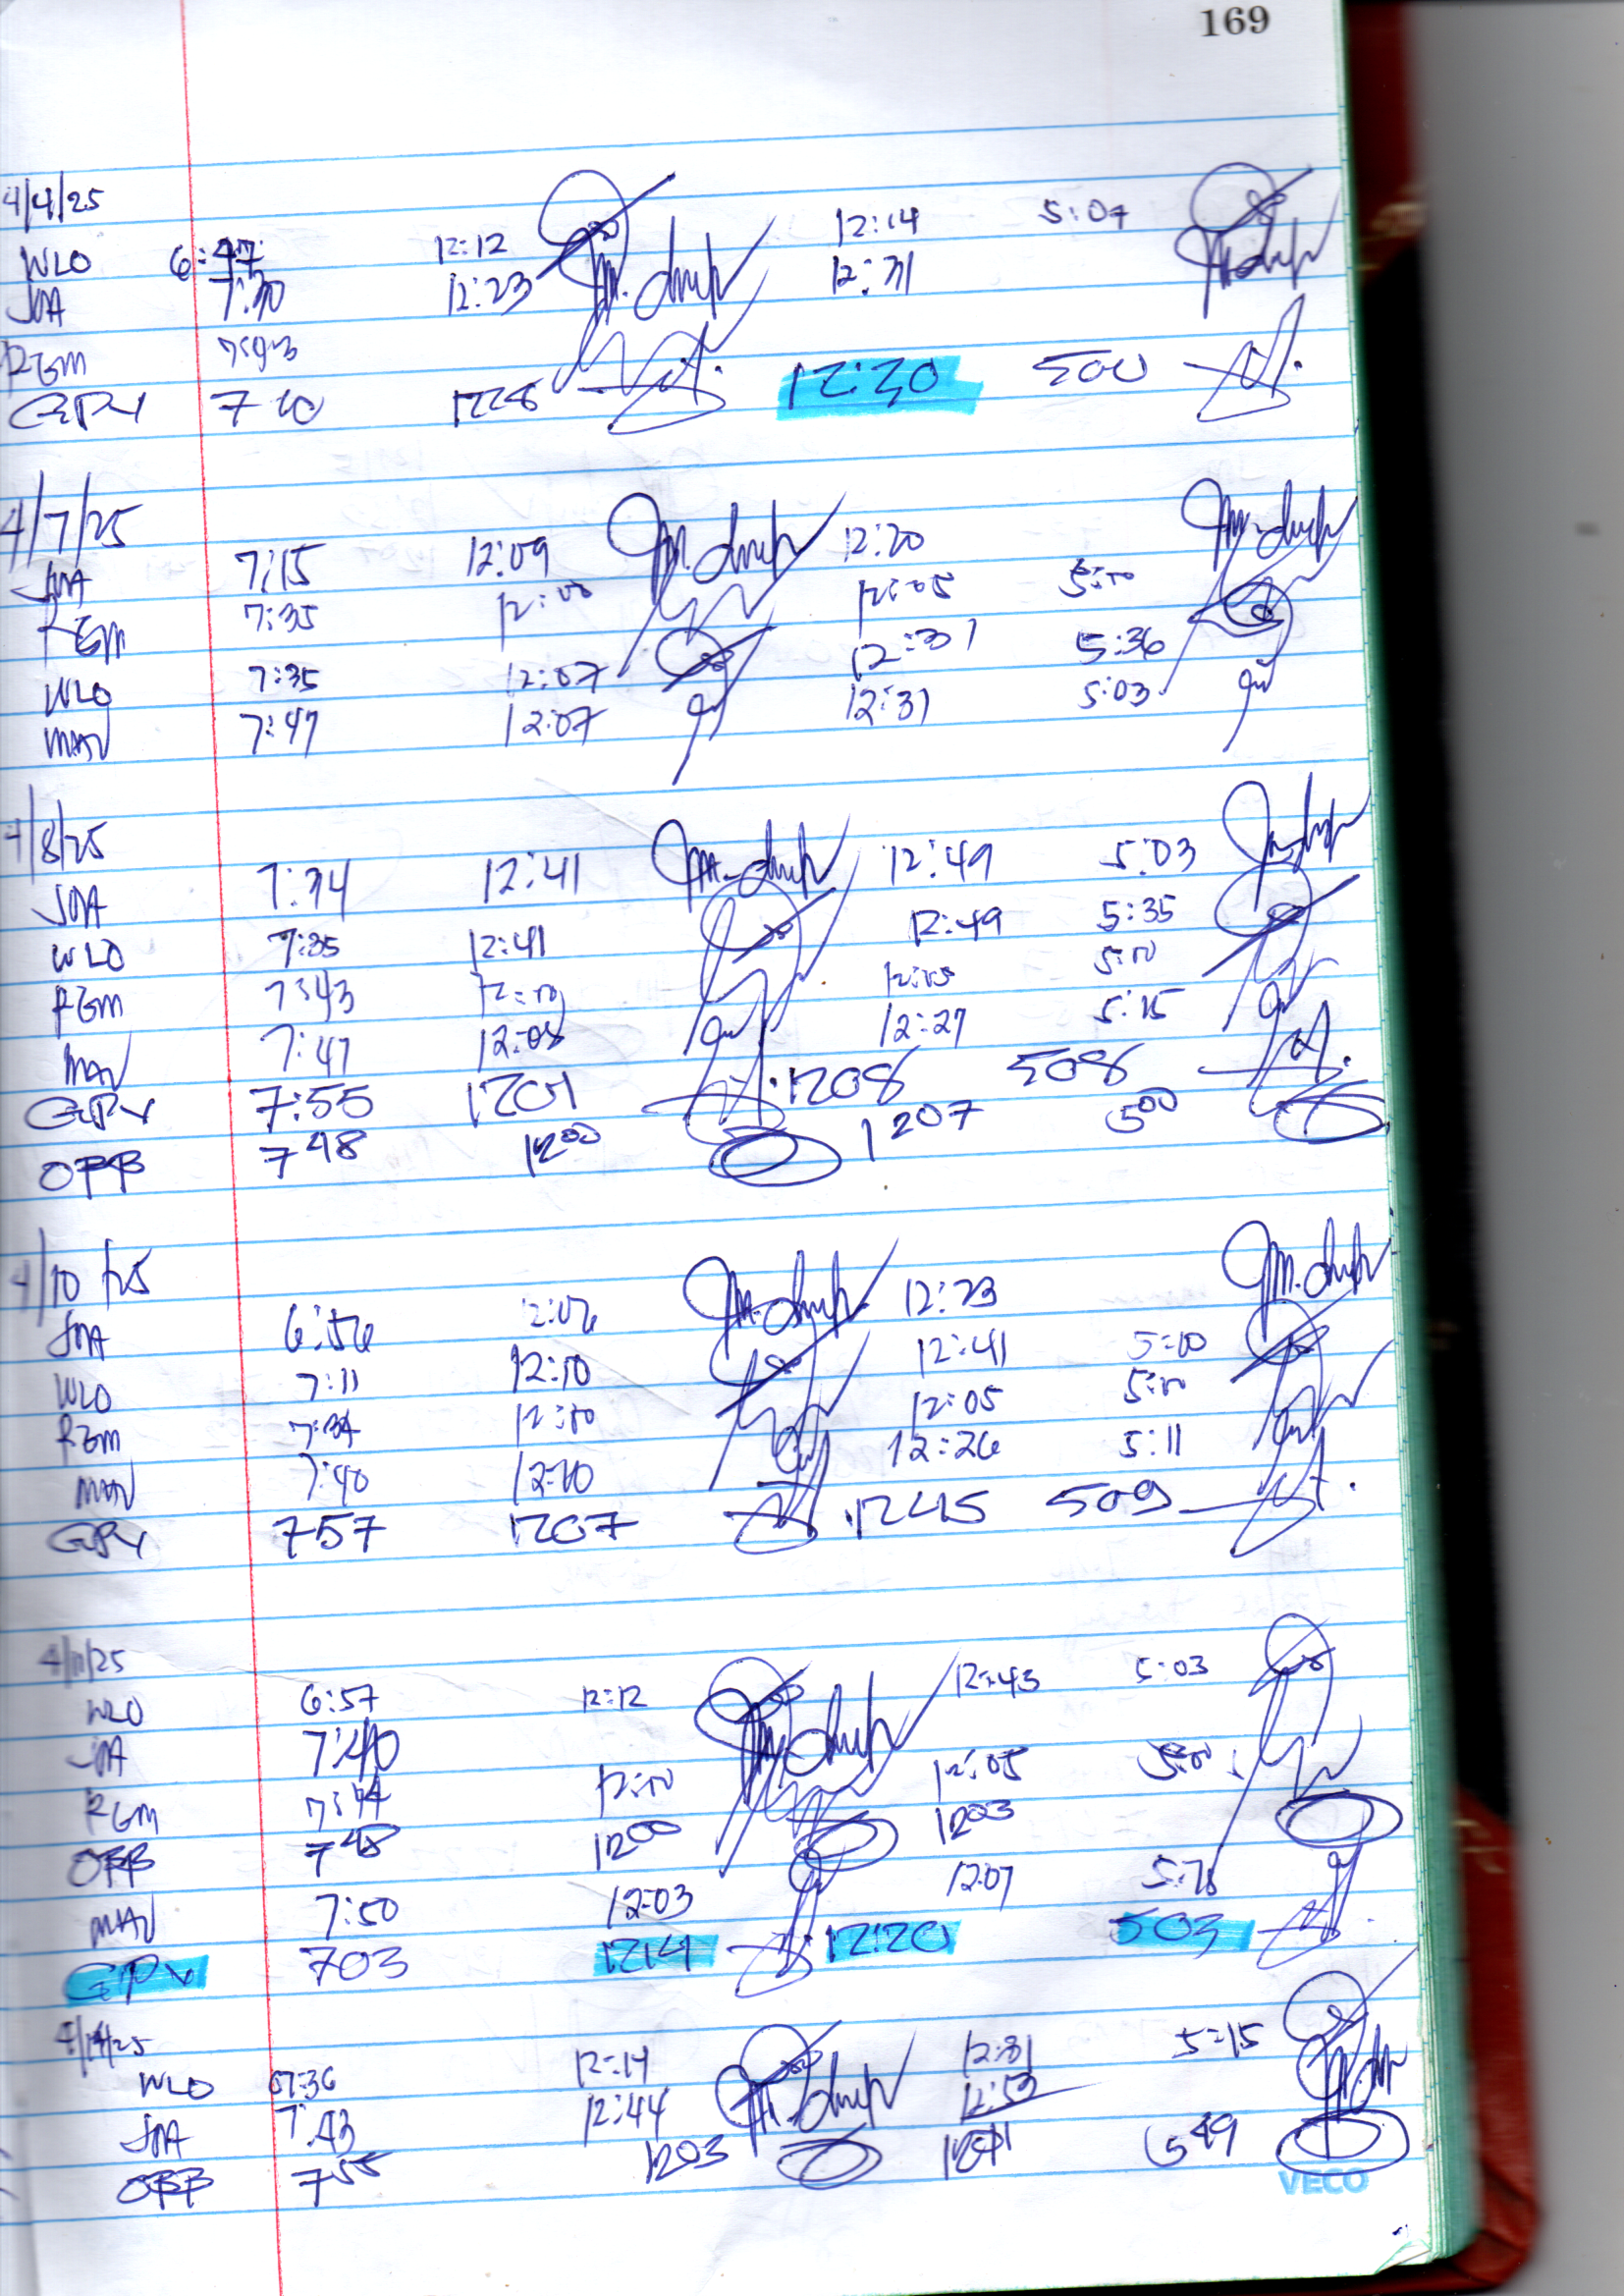 169
4/4/25
WLO 6:47 12:12 12:14 5:07
JOA 7:30 12:23 12:31
RGM 7:43
GPV 7 10 1228 12:30 500
4/7/25
JOA 7:15 12:09 12:20
RGM 7:35 12:00 12:05 5:00
WLO 7:35 12:07 12:31 5:36
MAV 7:47 12:07 12:31 5:03
4/8/25
JOA 7:34 12:41 12:49 5:03
WLO 7:35 12:41 12:49 5:35
RGM 7:43 12:00 12:05 5:00
MAV 7:47 12:08 12:27 5:15
GPV 7:55 1201 1208 508
OPB 7 48 12 00 1207 5 00
4/10/25
JOA 6:56 12:06 12:23
WLO 7:11 12:10 12:41 5:00
RGM 7:34 12:00 12:05 5:00
MAV 7:40 12:10 12:26 5:11
GPV 757 1207 1245 509
4/11/25
WLO 6:57 12:12 12:43 5:03
JOA 7:40
RGM 7:44 12:00 12:05 5:00
OPB 7 48 12 00 12 03
MAV 7:50 12:03 12:07
GPV 703 1214 12:20 503
4/14/25
WLO 07:36 12:14 12:31 5:15
JOA 7:43 12:44 12:53
OPB 7 55 1203 5 49
VECO